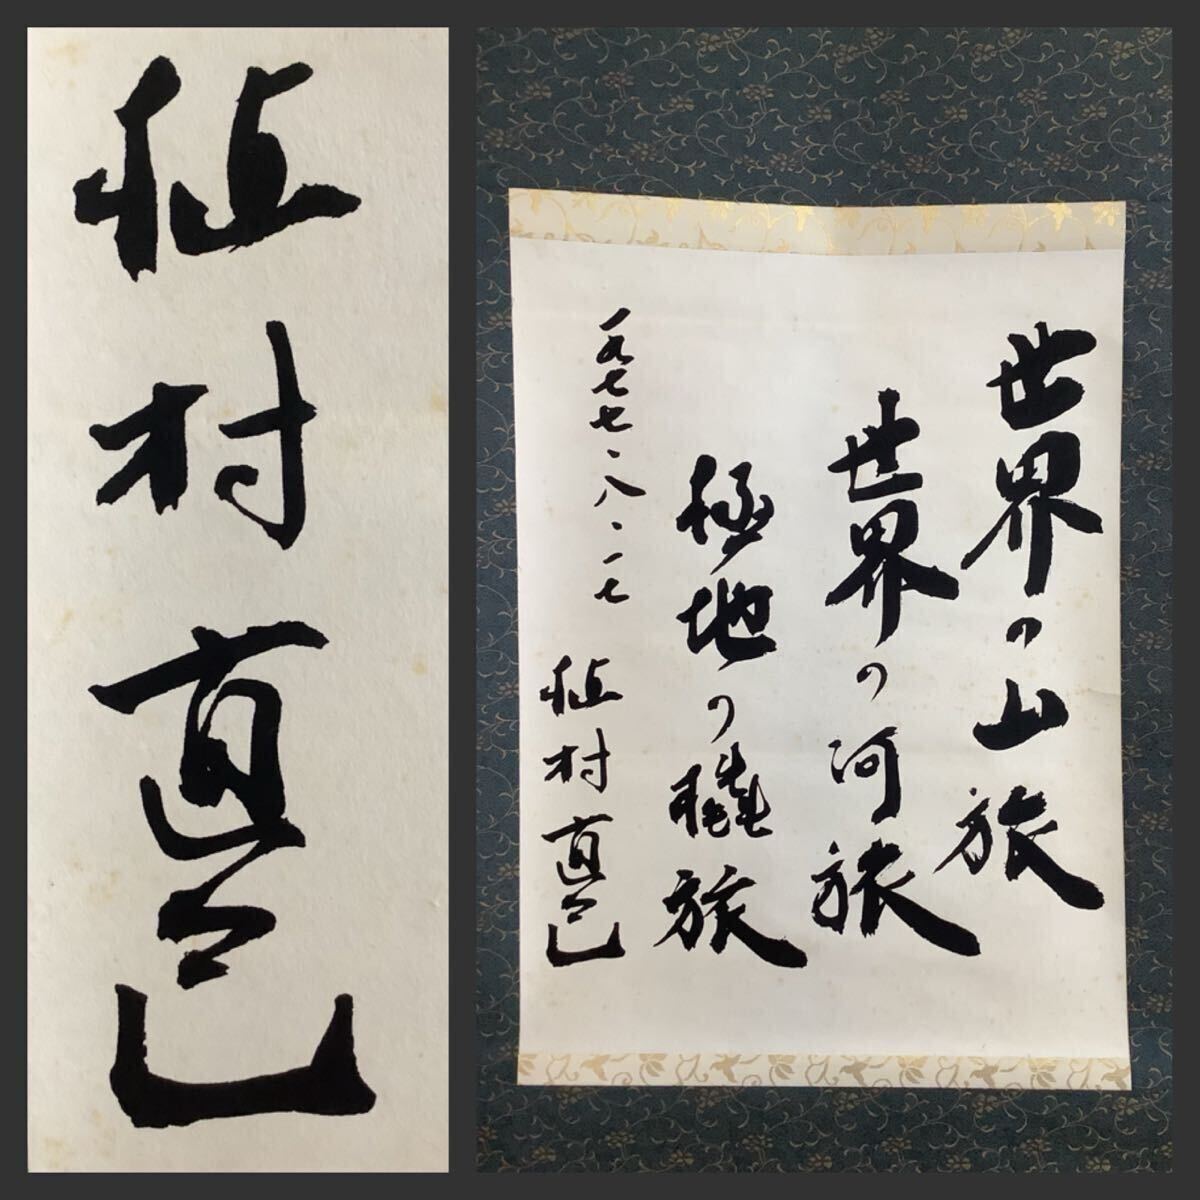 植村直己
世界の山旅
世界の河旅
極地の橇旅
一九七七・八・一七
植村直己